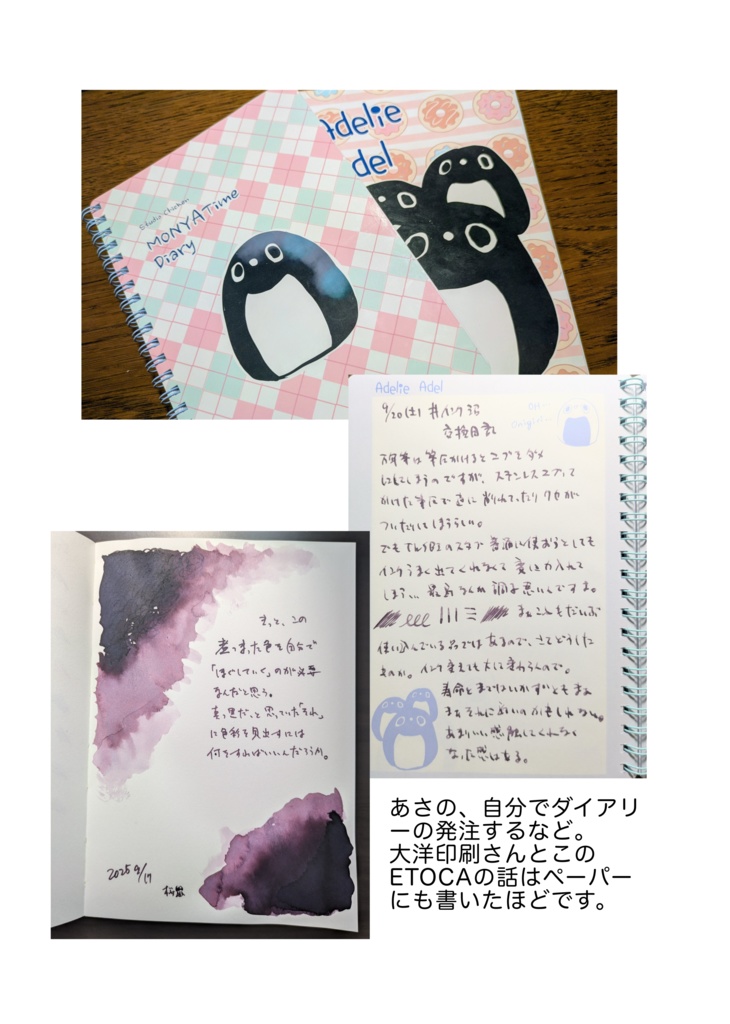 Adelie
Adel
MONYA Time
Diary
Adelie Adel
9/20(土) #インク沼
交換日記
万年筆は筆圧かけるとニブをダメ
にしてしまうのですが、ステンレスニブって
かけた筆圧で逆に削れていたりクセが
ついたりしてしまうらしい。
インクうまく出てくれなくて変に力入れて
しまい、最近なんか調子悪いんですよ。
まぁこれもだいぶ
使い込んでいる品ではあるので、さてどうした
ものか。インク変えても大して変わらんので。
寿命とまではいかずともまぁ
まぁそれに近いのかもしれない。
あまりいい感触してくれなく
なった感はある。
きっと、この
煮つまった色を自分で
「ほぐしていく」のが必要
なんだと思う。
真っ黒だ、と思っていた「それ」
に色彩を見出すには
何をすればいいんだろうか。
2025 9/17
あさの、自分でダイアリ
ーの発注するなど。
大洋印刷さんとこの
ETOCAの話はペーパー
にも書いたほどです。